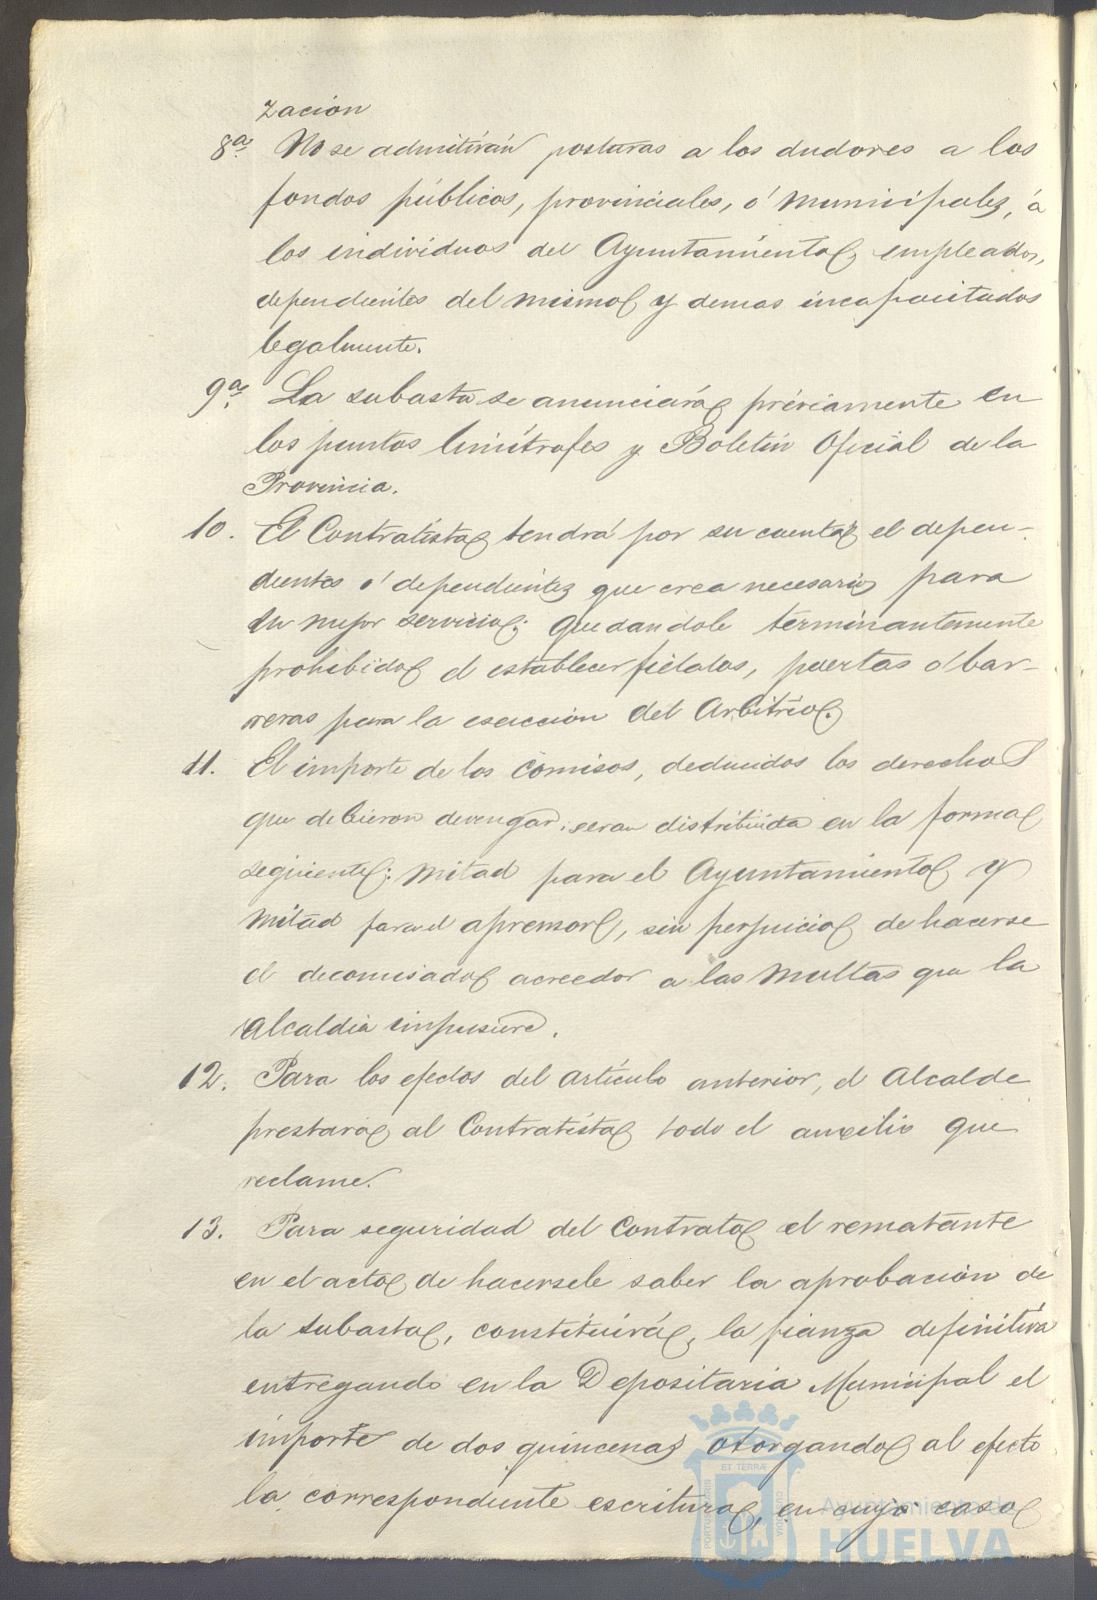 zacion
8ª. No se admitirán posturas a los dudores a los
fondos públicos, provinciales, ó municipales, á
los individuos del Ayuntamiento, empleados,
dependientes del mismo y demas incapacitados
legalmente.
9ª. La subasta se anunciará préviamente en
los puntos limítrofes y Boletin Oficial de la
Provincia.
10. El Contratista tendrá por su cuenta el depen-
dientes ó dependientes que crea necesario para
su mejor servicio; quedandole terminantemente
prohibido el establecer fielatos, puertas o bar-
reras para la esaccion del Arbitrio.
11. El importe de los comisos, deducidos los derechos
que debieron devengar, seran distribuida en la forma
seguiente: mitad para el Ayuntamiento y
mitad para el apremsor, sin perjuicio de hacerse
el decomisado acreedor a las multas que la
Alcaldia impusiere.
12. Para los efectos del artículo anterior, el Alcalde
prestará al Contratista todo el auxilio que
reclame.
13. Para seguridad del contrato el rematante
en el acto de hacersele saber la aprobacion de
la subasta, constituirá, la fianza definitiva
entregando en la Depositaria Municipal el
importe de dos quincenas otorgando al efecto
la correspondiente escritura, en cuyo caso
Ayuntamiento de
HUELVA